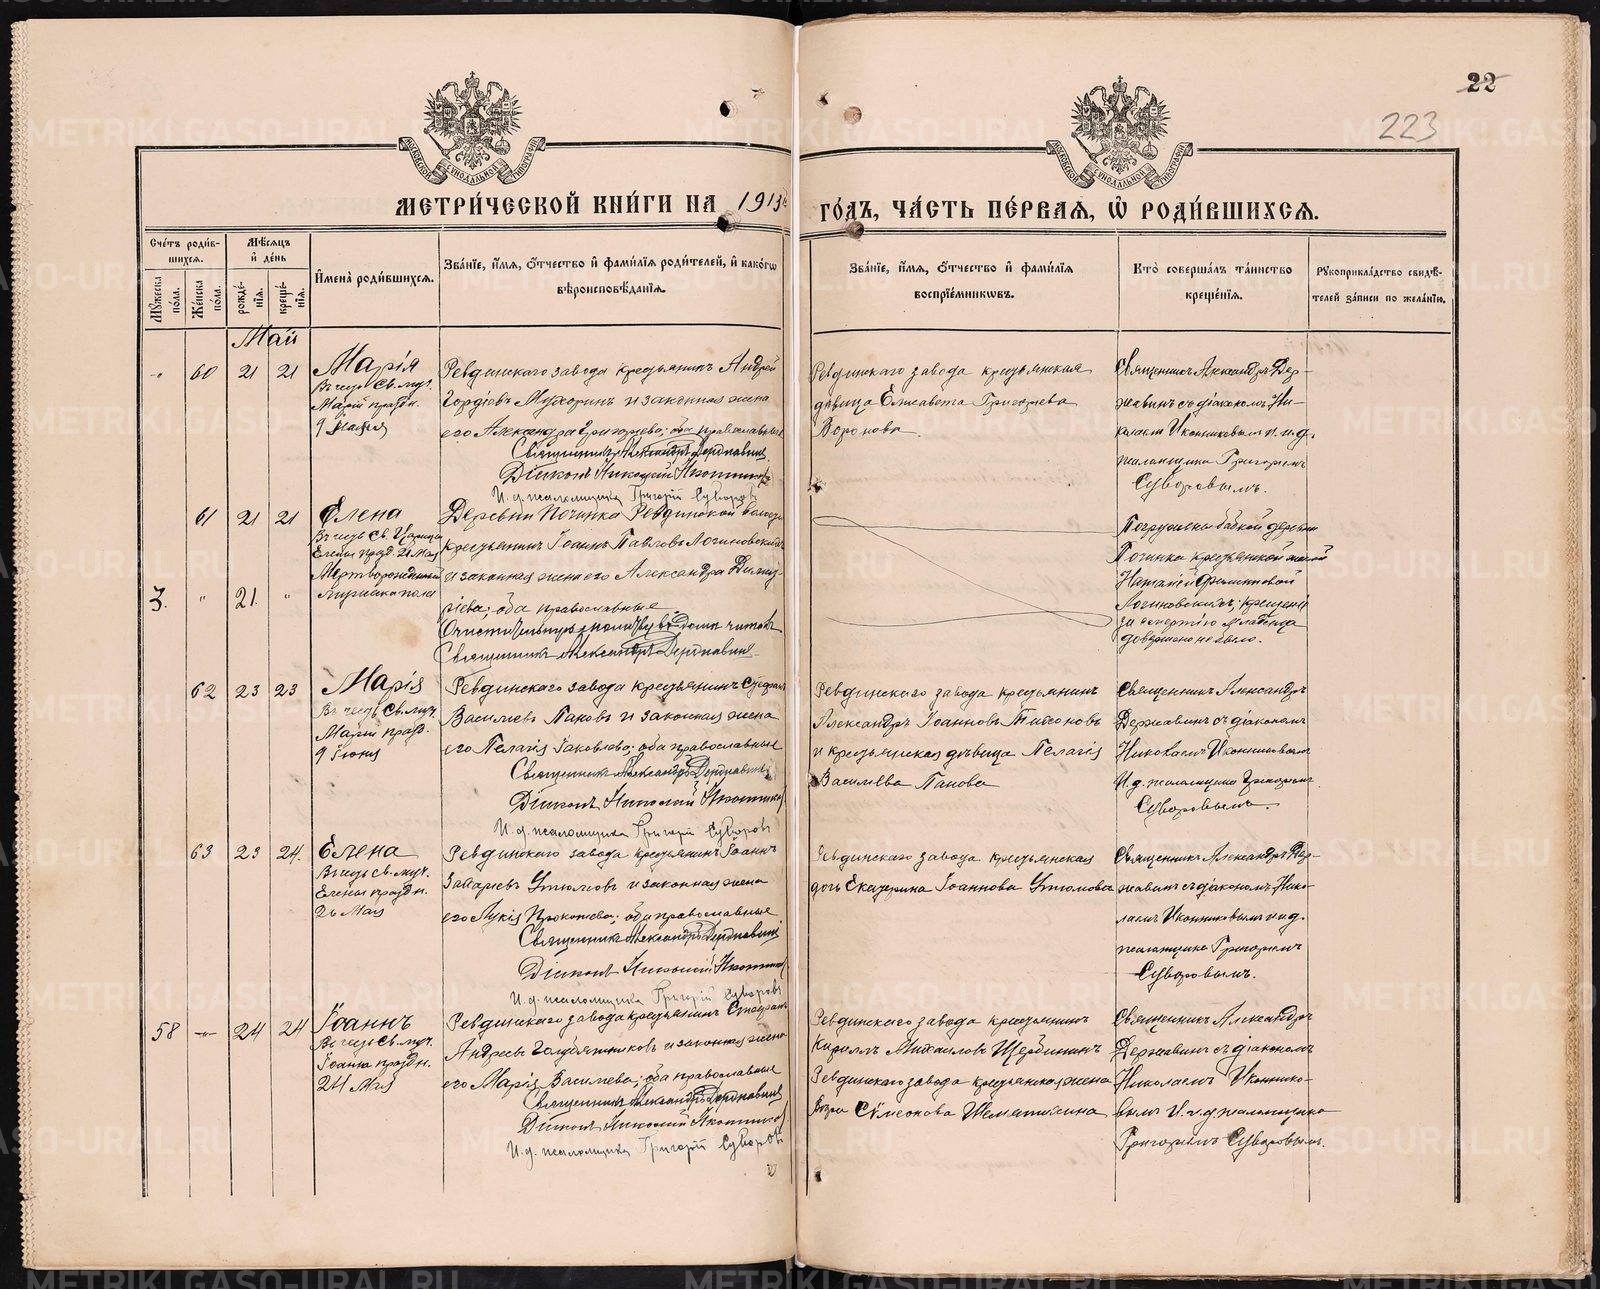 22
223
МЕТРИ́ЧЕСКОЙ КНИ́ГИ НА 1913 ГО́ДЪ, ЧА́СТЬ ПЕ́РВАЯ, Ѡ҆ РОДИ́ВШИХСЯ.
Сче́тъ роди́в-
шихся.
Мѣ́сяцъ
и҆ де́нь
Мꙋ́жеска по́ла.
Же́нска по́ла.
рожде́-
нїѧ.
креще́-
нїѧ.
И҆мена̀ роди́вшихсѧ.
Зва́нїе, и҆́мѧ, ѻ҆́тчество и҆ фами́лїѧ роди́телей, и҆ како́гѡ
вѣроисповѣ́данїѧ.
Зва́нїе, и҆́мѧ, ѻ҆́тчество и҆ фами́лїѧ
воспрїе́мникѡвъ.
Кто̀ соверша́лъ та́инство
креще́нїѧ.
Рꙋкоприкла́дство свидѣ́-
телей за́писи по жела́нїю.
Май
" 60 21 21
Марія
Въ честь Св. муч.
Маріи праздн.
Ревдинскаго завода крестьянинъ Андрей
Гордіевъ Мухоринъ и законная жена
его Александра Григорьева; оба православные
Священникъ Александръ Державинъ
Діаконъ Николай Иконников
И. д. псаломщика Григорій Суворовъ
Ревдинскаго завода крестьянская
дѣвица Елисавета Григорьева
Воронова
Священникъ Александръ Дер-
жавинъ съ діакономъ Ни-
колаемъ Иконниковымъ и и. д.
псаломщика Григоріемъ
Суворовымъ.
61 21 21
Елена
Въ честь Св. Царицы
Елены празд. 21 Мая
Деревни Починка Ревдинской волости
крестьянинъ Іоаннъ Павловъ Логиновскихъ
и законная жена его Александра Димит-
ріева; оба православные
3. " 21. "
Мертворожденный
мужска пола
Очистительную молитву въ домѣ читалъ
Священникъ Александръ Державинъ
Погружены бабкой деревни
Починка крестьянской женой
Наталіей Филипповой
Логиновскихъ; крещеніе
за смертію младенца
довершено не было.
62 23 23
Марія
Въ честь Св. муч.
Маріи празд.
9 Іюня
Ревдинскаго завода крестьянинъ Стефанъ
Василіевъ Пановъ и законная жена
его Пелагія Іаковлева; оба православные
Священникъ Александръ Державинъ
Діаконъ Николай Иконников
И. д. псаломщика Григорій Суворовъ
Ревдинскаго завода крестьянинъ
Александръ Іоанновъ Тихоновъ
и крестьянская дѣвица Пелагія
Василіева Панова
Священникъ Александръ
Державинъ съ діакономъ
Николаемъ Иконниковымъ
И. д. псаломщика Григоріемъ
Суворовымъ.
63 23 24.
Елена
Въ честь Св. муч.
Елены праздн.
26 Мая
Ревдинскаго завода крестьянинъ Іоаннъ
Захаріевъ Утюмовъ и законная жена
его Лукія Прокопіева; оба православные
Священникъ Александръ Державинъ
Діаконъ Николай Иконников
И. д. псаломщика Григорій Суворовъ
Ревдинскаго завода крестьянская
дочь Екатерина Іоаннова Утюмова
Священникъ Александръ Дер-
жавинъ съ діакономъ Нико-
лаемъ Иконниковымъ и и. д.
псаломщика Григоріемъ
Суворовымъ.
58 " 24 24
Іоаннъ
Въ честь Св. муч.
Іоанна праздн.
24 Мая
Ревдинскаго завода крестьянинъ Стефанъ
Андреевъ Голубятниковъ и законная жена
его Марія Василіева; оба православные
Священникъ Александръ Державинъ
Діаконъ Николай Иконников
И. д. псаломщика Григорій Суворовъ
Ревдинскаго завода крестьянинъ
Кириллъ Михаиловъ Щербининъ
Ревдинскаго завода крестьянская жена
Сѵмеонова Шемятихина
Священникъ Александръ
Державинъ съ діакономъ
Николаемъ Иконнико-
вымъ и и. д. псаломщика
Григоріемъ Суворовымъ.
METRIKI.GASO-URAL.RU